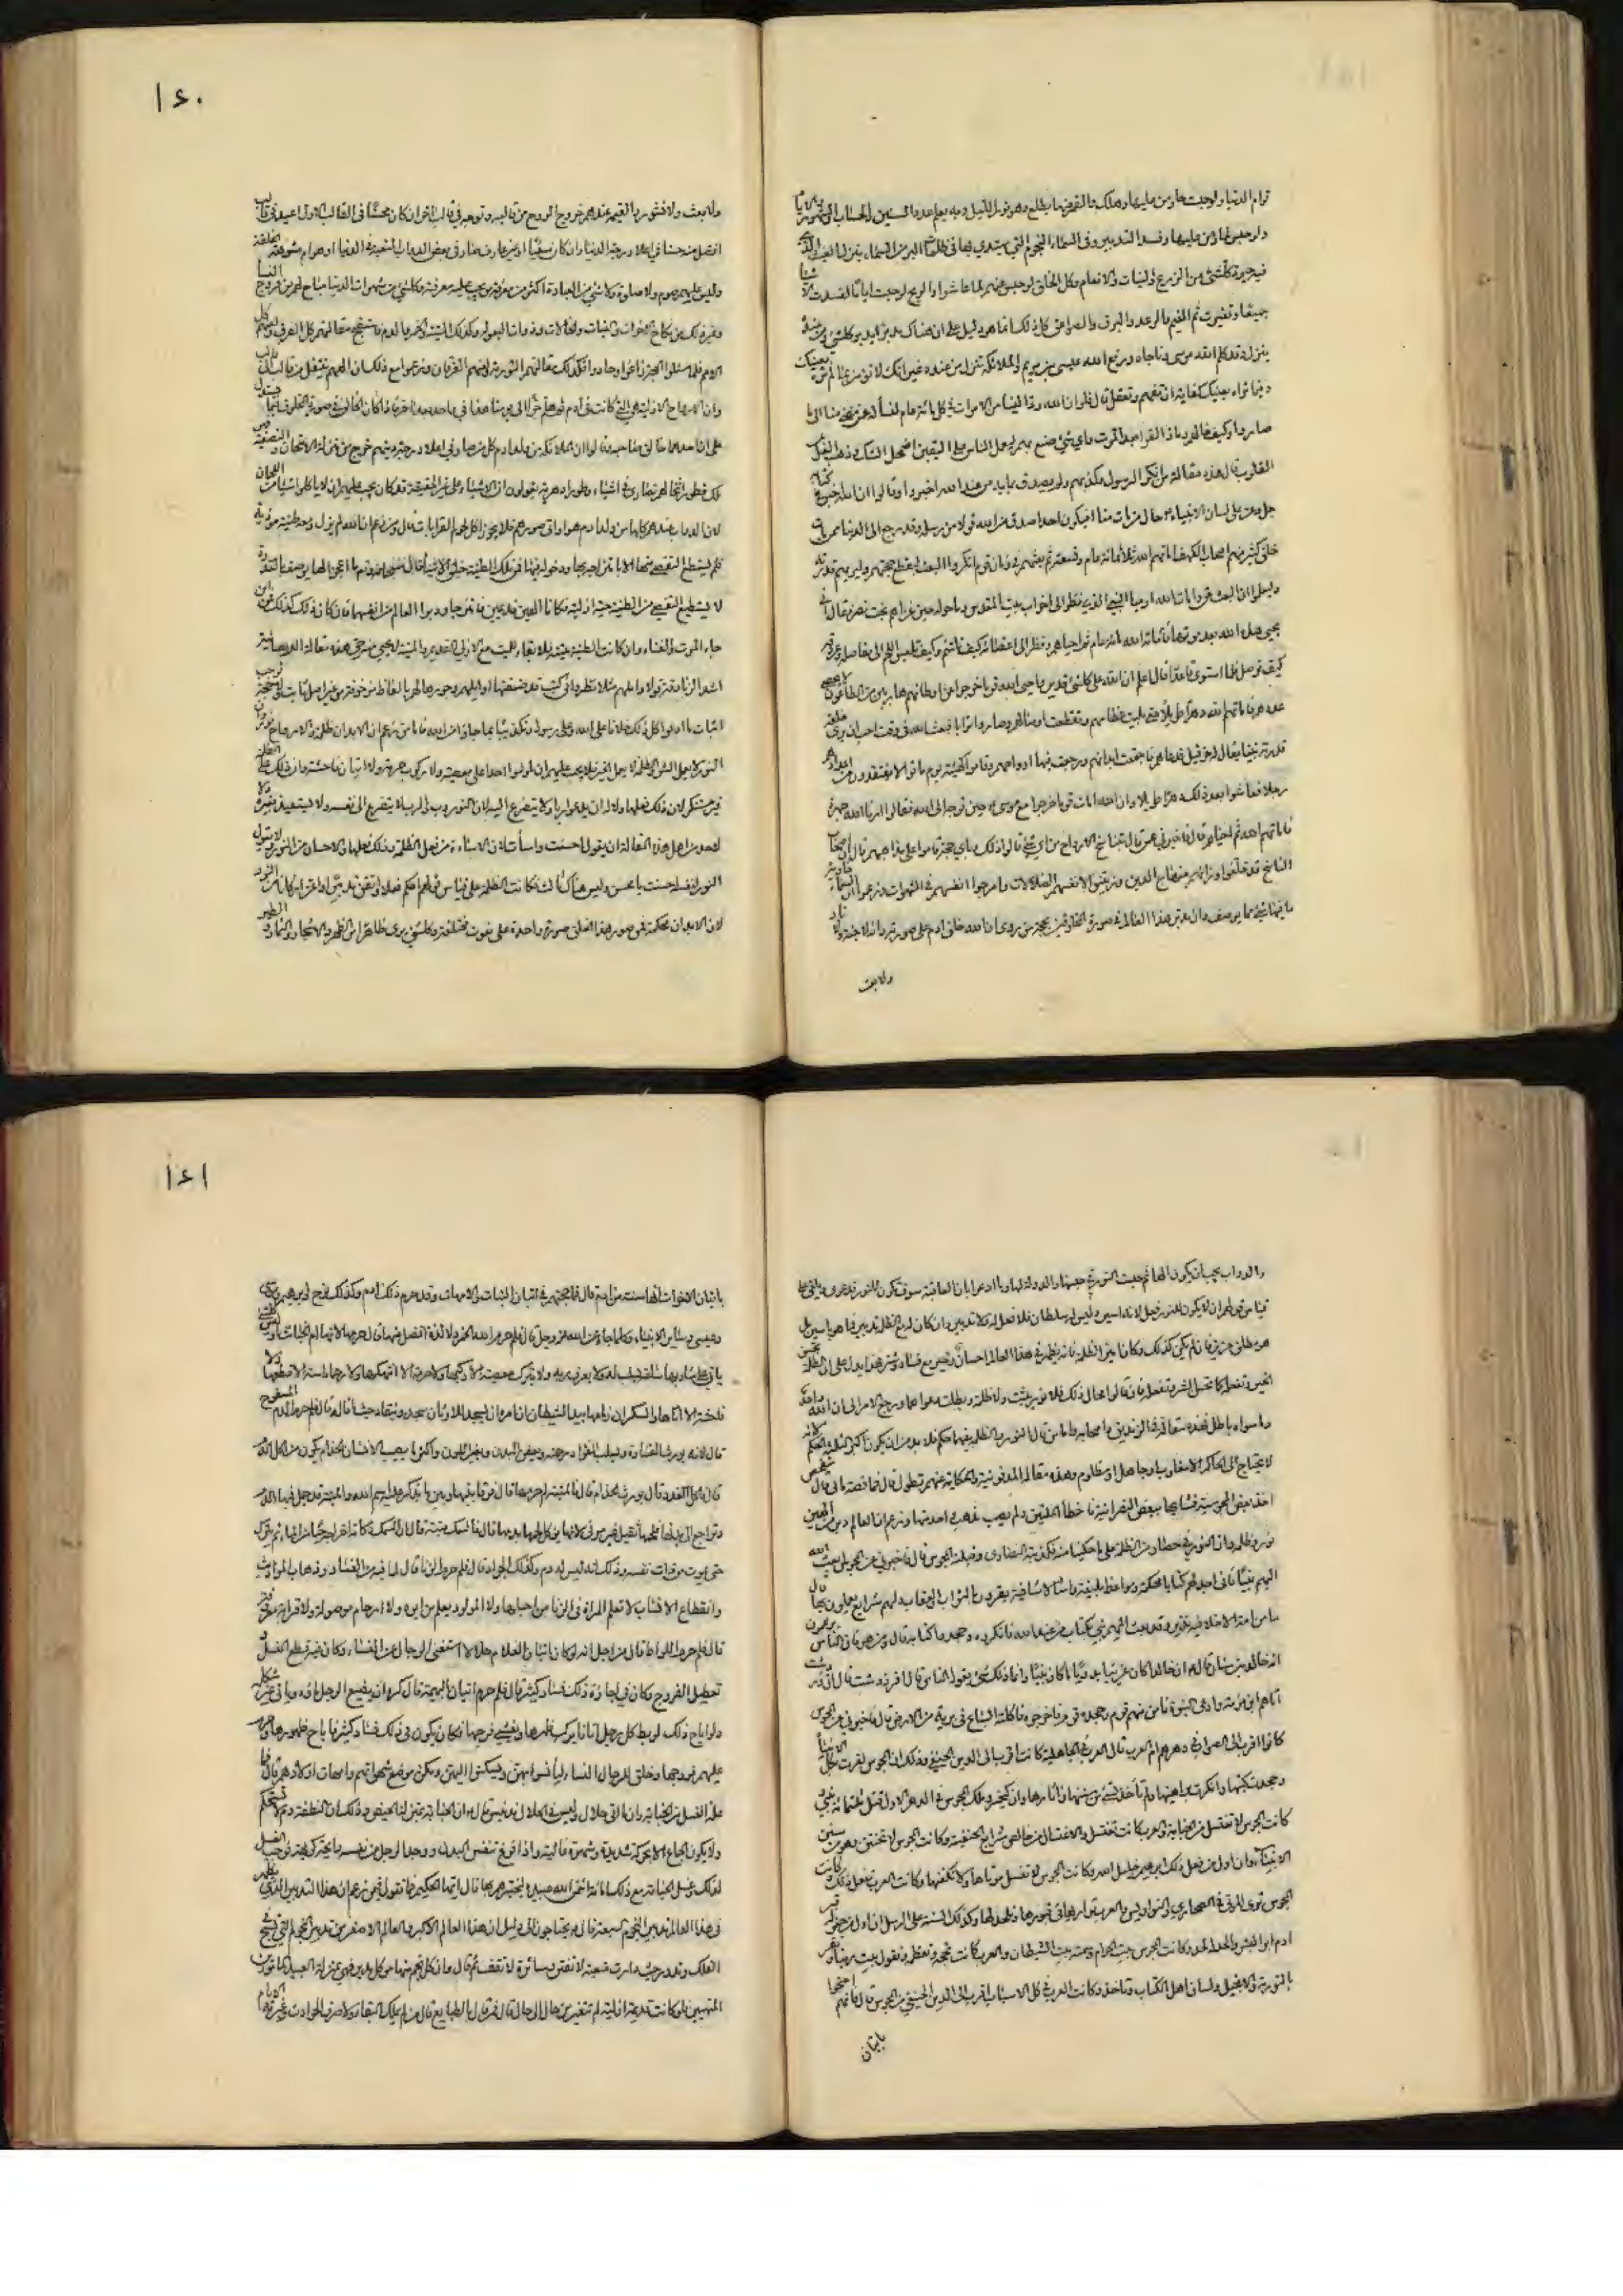 قوام الدنيا ولو حبست حار من عليها وهلك والقمر منها يطلع وهو نور الليل وبه يعلم عدد السنين والحساب والشهور والايام
ولو حبس لحار من عليها وفسد التدبير وفى السماء النجوم التي يهتدي بها فى ظلمات البر والبحر ومن السماء ينزل الغيث الذي
فيه حيوة كل شئ من الزرع والنبات والانعام وكل الخلق لو حبس عنهم لما عاشوا والريح لو حبست اياما لفسدت الاشياء
جميعا وتغيرت ثم الغيم والرعد والبرق والصواعق كل ذلك انما هو دليل على ان هناك مدبر يدبر كل شئ ومن عنده
ينزل وقد كلم الله موسى وناجاه ورفع الله عيسى بن مريم والملائكة تنزل من عنده غير انك لا تؤمن بما لم تره بعينك
وفيما تراه بعينك كفاية ان تفهم وتعقل قال فلو ان الله رد الينا من الاموات فى كل مائة عام
صاروا وكيف حالهم وماذا لقوا بعد الموت واي شئ صنع بهم ليعمل الناس على اليقين اضمحل الشك وذهب الغل عن
القلوب قال هذه مقالة من انكر الرسل وكذبهم ولم يصدق بما به من عند الله اخبروا وقالوا ان الله اخبر فى كتابه
عز وجل على لسان الانبياء حال من مات منا افيكون احد اصدق من الله قولا ومن رسله وقد رجع الى الدنيا ممن مات
خلق كثير منهم اصحاب الكهف اماتهم الله ثلاثمائة عام وتسعة ثم بعثهم فى زمان قوم انكروا البعث ليقطع حجتهم وليريهم قدرته
وليعلموا ان البعث حق وامات الله ارميا النبي الذي نظر الى خراب بيت المقدس وما حوله حين غزاهم بخت نصر فقال انى
يحيى هذه الله بعد موتها فاماته الله مائة عام ثم احياه ونظر الى اعضائه كيف تلتئم وكيف تلبس اللحم والى مفاصله وعروقه
كيف توصل فلما استوى قاعدا قال اعلم ان الله على كل شئ قدير واحيى الله قوما خرجوا عن اوطانهم هاربين من الطاعون لا يحصى
عددهم فاماتهم الله دهرا طويلا حتى بليت عظامهم وتقطعت اوصالهم وصاروا ترابا فبعث الله فى وقت احب ان يرى خلقه
قدرته نبيا يقال له حزقيل فدعاهم فاجتمعت ابدانهم ورجعت فيها ارواحهم وقاموا كهيئة يوم ماتوا لا يفتقدون من اعدادهم
رجلا فعاشوا بعد ذلك دهرا طويلا وان الله امات قوما خرجوا مع موسى حين توجه الى الله فقالوا ارنا الله جهرة
فاماتهم الله ثم احياهم قال فاخبرني عمن قال بتناسخ الارواح من اي شئ قالوا ذلك وباي حجة قاموا على مذاهبهم قال ان اصحاب
التناسخ قد خلفوا وراءهم منهاج الدين وزينوا لانفسهم الضلالات وامرجوا انفسهم فى الشهوات وزعموا ان السماء خاوية
ما فيها شئ مما يوصف وان مدبر هذا العالم فى صورة المخلوقين بحجة من روى ان الله خلق ادم على صورته وانه لا جنة ولا نار
ولا بعث
١٦٠
ولا بعث ولا نشور والقيمة عندهم خروج الروح من قالبه وولوجه فى قالب اخر ان كان محسنا فى القالب الاول اعيد فى قالب
افضل منه حسنا فى اعلى درجة الدنيا وان كان مسيئا او غير عارف صار فى بعض الدواب المتعبة فى الدنيا او هوام مشوهة الخلقة
وليس عليهم صوم ولا صلوة ولا شئ من العبادة اكثر من معرفة من يجب عليه معرفته وكل شئ من شهوات الدنيا مباح لهم من فروج النساء
وغير ذلك من نكاح الاخوات والبنات والخالات وذوات البعولة وكذلك الميتة والخمر والدم فاستقبح مقالتهم كل الفرق ولعنهم كل
الامم فلما سئلوا الحجة زاغوا وحادوا فكذب مقالتهم التورية ولعنهم الفرقان وزعموا مع ذلك ان الههم ينتقل من قالب الى قالب
وان الارواح الازلية هي التي كانت فى ادم ثم هلم جرا الى يومنا هذا فى واحد بعد اخر فاذا كان الخالق فى صورة المخلوق فبما يستدل
على ان احدهما خالق صاحبه وقالوا ان الملائكة من ولد ادم كل من صار فى اعلى درجة دينهم خرج من منزلة الامتحان والتصفية فهو
ملك فطورا تخالهم نصارى فى اشياء وطورا دهرية يقولون ان الاشياء على غير الحقيقة فقد كان يجب عليهم ان لا ياكلوا شيئا من اللحمان
لان الدواب عندهم كلها من ولد ادم حولوا فى صورهم فلا يجوز اكل لحوم القرابات قال ومن زعم ان الله لم يزل ومعه طينة موذية
فلم يستطع التفصي منها الا بامتزاجه بها ودخوله فيها فمن تلك الطينة خلق الاشياء قال سبحان الله وتعالى ما اعجز الها يوصف بالقدرة
لا يستطيع التفصي من الطينة ان كانت الطينة حية ازلية فكانا الهين قديمين فامتزجا ودبرا العالم من انفسهما فان كان ذلك كذلك فمن اين
جاء الموت والفناء وان كانت الطينة ميتة فلا بقاء للميت مع الازلي القديم والميت لا يجئ منه حي هذه مقالة الديصانية
اشد الزنادقة قولا واهملهم مثلا نظروا فى كتب قد صنفتها اوايلهم وحبروها لهم بالفاظ مزخرفة من غير اصل ثابت ولا حجة توجب
اثبات ما ادعوا كل ذلك خلافا على الله وعلى رسوله وتكذيبا بما جاؤا به عن الله فاما من زعم ان الابدان ظلمة والارواح نور وان
النور لا يعمل الشر والظلمة لا تعمل الخير فلا يجب عليهم ان يلوموا احدا على معصية ولا ركوب حرمة ولا اتيان فاحشة وان ذلك على الظلمة
غير مستنكر لان ذلك فعلها ولا له ان يدعو ربا ولا يتضرع اليه لان النور رب والرب لا يتضرع الى نفسه ولا يستعيذ بغيره ولا
لاحد من اهل هذه المقالة ان يقول احسنت واسأت لان الاساءة من فعل الظلمة وذلك فعلها والاحسان من النور ولا يقول
النور لنفسه احسنت يا محسن وليس هناك ثالث فكانت الظلمة على قياس قولهم احكم فعلا واتقن تدبيرا واعز اركانا من النور
لان الابدان محكمة فمن صور هذا الخلق صورة واحدة على نعوت مختلفة وكل شئ يرى ظاهرا من الزهر والاشجار والثمار والطير
والدواب يجب ان يكون الها ثم حبست النور فى حبسها والدولة لها وما ادعوا بان العاقبة سوف تكون للنور فدعوى وينبغي على
قياس قولهم ان لا يكون للنور فعل لانه اسير وليس له سلطان فلا فعل له ولا تدبير وان كان له مع الظلمة تدبير فما هو باسير بل
هو مطلق عزيز فان لم يكن كذلك وكان اسير الظلمة فانه يظهر فى هذا العالم احسان وخير مع فساد وشر فهذا يدل على ان الظلمة تحسن
الخير وتفعله كما تحسن الشر وتفعله فان قالوا محال ذلك فلا نور يثبت ولا ظلمة وبطلت دعواهما ورجع الامر الى ان الله واحد
وما سواه باطل فهذه مقالة مانى الزنديق واصحابه واما من قال النور والظلمة بينهما حكم فلا بد من ان يكون اكبر الثلاثة الحكم لانه
لا يحتاج الى الحاكم الا مغلوب او جاهل او مظلوم وهذه مقالة المدقونية والحكاية عنهم تطول قال فما قصة مانى قال متفحص
اخذ بعض المجوسية فشابها ببعض النصرانية فاخطأ الملتين ولم يصب مذهبا واحدا منهما وزعم ان العالم دبر من الهين
نور وظلمة وان النور فى حصار من الظلمة على ما حكينا منه فكذبته النصارى وقبلته المجوس قال فاخبرني عن المجوس ابعث الله
اليهم نبيا فانى اجد لهم كتابا محكمة ومواعظ بليغة وامثالا شافية يقرون بالثواب والعقاب ولهم شرايع يعملون بها قال
ما من امة الا خلا فيها نذير وقد بعث اليهم نبي بكتاب من عند الله فانكروه وجحدوا كتابه قال ومن هو فان الناس يزعمون
انه خالد بن سنان قال ان خالدا كان عربيا بدويا ما كان نبيا وانما ذلك شئ يقوله الناس قال افزردشت قال ان زردشت
اتاهم بزمزمة وادعى النبوة فامن منهم قوم وجحده قوم فاخرجوه فاكلته السباع فى برية من الارض قال فاخبرني عن المجوس
كانوا اقرب الى الصواب فى دهرهم ام العرب قال العرب فى الجاهلية كانت اقرب الى الدين الحنيفي وذلك ان المجوس كفرت بكل الانبياء
وجحدت كتبها وانكرت براهينها ولم تأخذ بشئ من سننها واثارها وان كيخسرو ملك المجوس فى الدهر الاول قتل ثلثمائة نبي
كانت المجوس لا تغتسل من الجنابة والعرب كانت تغتسل والاغتسال من خالص شرايع الحنيفية وكانت المجوس لا تختتن وهو من سنن
الانبياء وان اول من فعل ذلك ابرهيم خليل الله وكانت المجوس لا تغسل موتاها ولا تكفنها وكانت العرب تفعل ذلك وكانت
المجوس ترمى الموتى فى الصحاري والنواويس والعرب تواريها فى قبورها وتلحد لها وكذلك السنة على الرسل ان اول من حفر له قبر
ادم ابو البشر والحد له لحد وكانت المجوس تاتى الامهات وتنكح البنات والاخوات وحرمت ذلك العرب وانكرت المجوس بيت الله الحرام وسمته بيت الشيطان والعرب كانت تحجه وتعظمه وتقول بيت ربنا وتقر
بالتورية والانجيل وتسأل اهل الكتاب وتاخذ وكانت العرب فى كل الاسباب اقرب الى الدين الحنيفي من المجوس قال فانهم احتجوا
باتيان
١٦١
باتيان الاخوات انها سنة من ادم قال فما حجتهم فى اتيان البنات والامهات وقد حرم ذلك ادم وكذلك نوح وابرهيم وموسى
وعيسى وساير الانبياء وكلما جاء عن الله عز وجل قال فلم حرم الله الخمر ولا لذة افضل منها قال حرمها لانها ام الخبائث وراس كل شر
ياتى على شاربها ساعة يسلب لبه ولا يعرف ربه ولا يترك معصية الا ركبها ولا حرمة الا انتهكها ولا رحما ماسة الا قطعها ولا
فاحشة الا اتاها والسكران زمامه بيد الشيطان ان امره ان يسجد للاوثان سجد وينقاد حيث ما قاده قال فلم حرم الدم المسفوح
قال لانه يورث القساوة ويسلب الفؤاد رحمته ويعفن البدن ويغير اللون واكثر ما يصيب الانسان الجذام يكون من اكل الدم
قال فاكل الغدد قال يورث الجذام قال فالميتة لم حرمها قال فرقا بينها وبين ما يذكر عليه اسم الله والميتة قد جمد فيها الدم
وتراجع الى بدنها فلحمها ثقيل غير مرئ لانها يؤكل لحمها بدمها قال فالسمك ميتة قال ان السمك ذكاته اخراجه حيا من الماء ثم يترك
حتى يموت من ذات نفسه وذلك انه ليس له دم وكذلك الجراد قال فلم حرم الزنا قال لما فيه من الفساد وذهاب المواريث
وانقطاع الانساب لا تعلم المراة فى الزنا من احبلها ولا المولود يعلم من ابوه ولا ارحام موصولة ولا قرابة معروفة
قال فلم حرم اللواط قال من اجل انه لو كان اتيان الغلام حلالا لاستغنى الرجال عن النساء وكان فيه قطع النسل و
تعطيل الفروج وكان فى اجازة ذلك فساد كثير قال فلم حرم اتيان البهيمة قال كره ان يضيع الرجل ماءه وياتى غير شكله
ولو اباح ذلك لربط كل رجل اتانا يركب ظهرها ويغشى فرجها فكان يكون فى ذلك فساد كثير فاباح ظهورها وحرم
عليهم فروجها وخلق للرجال النساء ليأنسوا بهن ويسكنوا اليهن ويكن موضع شهواتهم وامهات اولادهم قال فما
علة الغسل من الجنابة وان ما اتى حلال وليس فى الحلال تدنيس قال ان الجنابة بمنزلة الحيض وذلك ان النطفة دم لم يستحكم
ولا يكون الجماع الا بحركة شديدة وشهوة غالبة واذا فرغ تنفس البدن ووجد الرجل من نفسه رايحة كريهة فوجب الغسل
لذلك وغسل الجنابة مع ذلك امانة ائتمن الله عبيده ليختبرهم بها قال ايها الحكيم فما تقول فيمن زعم ان هذا التدبير الذي يظهر
فى هذا العالم تدبير النجوم السبعة قال يحتاجون الى دليل ان هذا العالم الاكبر والعالم الاصغر من تدبير النجوم التي تسبح فى
الفلك وتدور حيث دارت متعبة لا تفتر وسائرة لا تقف ثم قال وان كل نجم منها موكل مدبر فهي بمنزلة العبيد المأمورين
المنهيين فلو كانت قديمة ازلية لم تتغير من حال الى حال قال فمن قال بالطبايع قال من لم يملك البقاء ولا صرف الحوادث وغيرته الايام